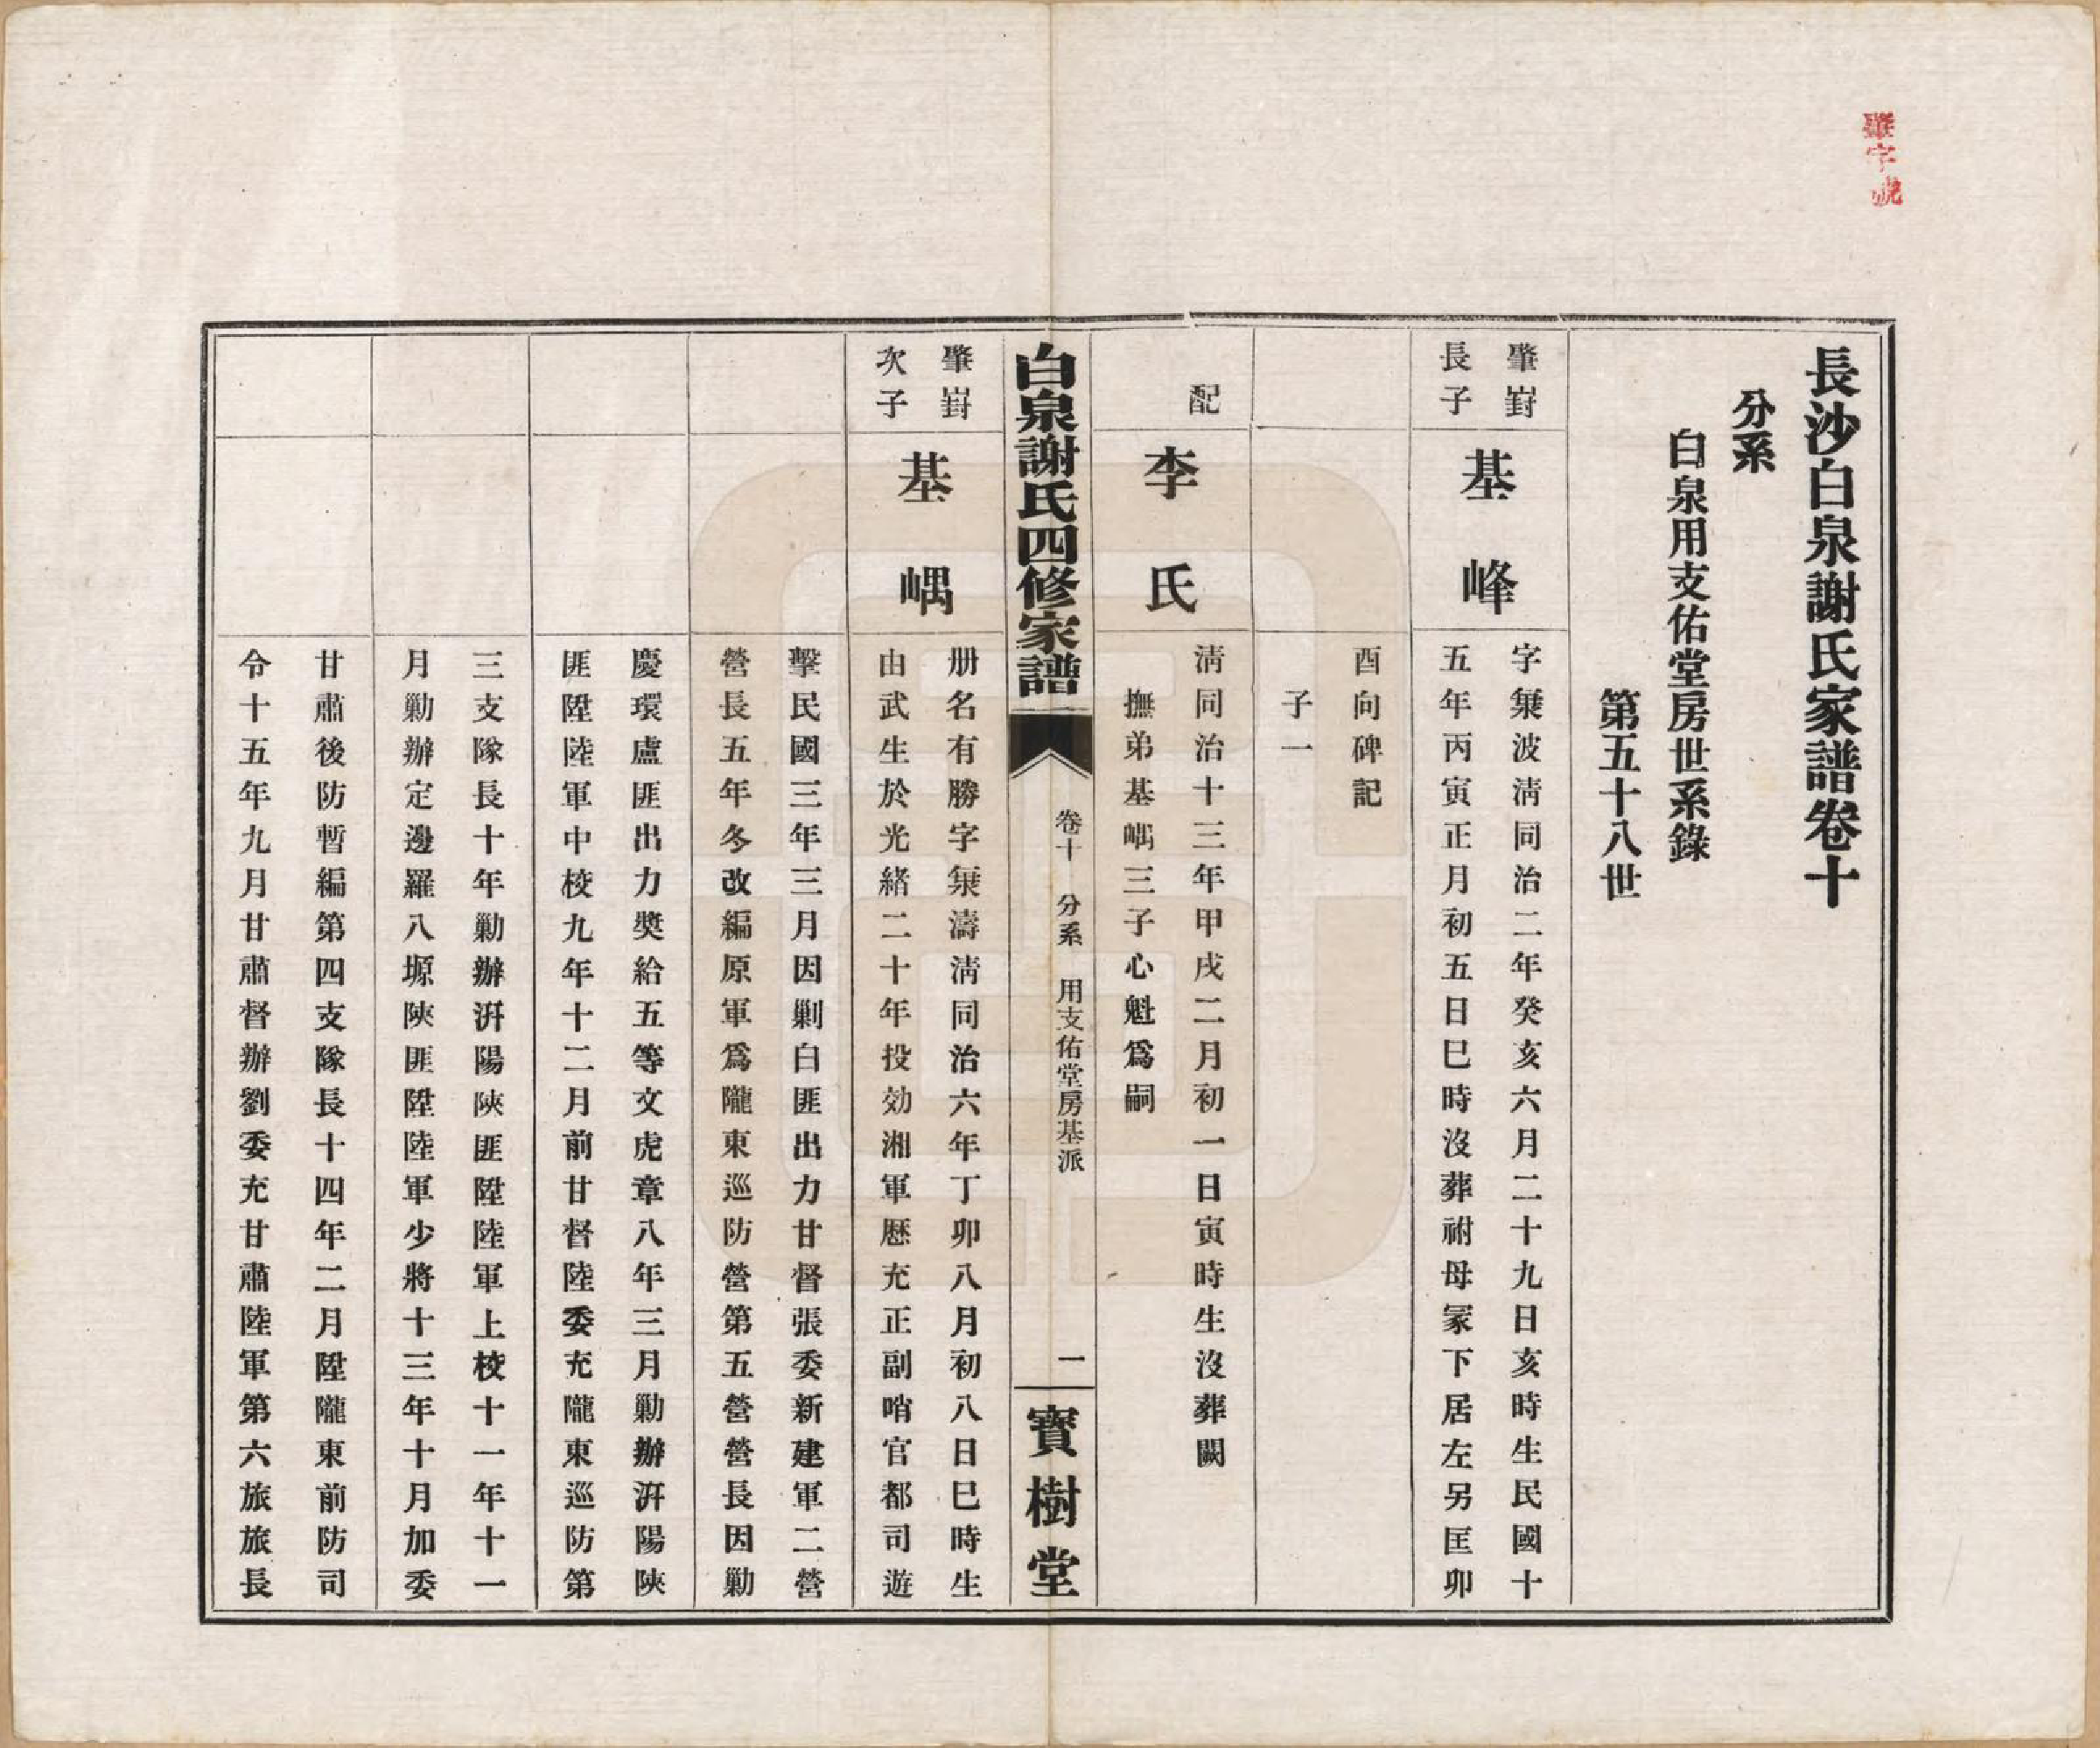 肇字號
長沙白泉謝氏家譜卷十
分系
白泉用支佑堂房世系錄
第五十八世
肇崶
長子
基峰
字藻波淸同治二年癸亥六月二十九日亥時生民國十
五年丙寅正月初五日巳時沒葬祔母冢下居左另匡卯
酉向碑記
子一
配
李氏
淸同治十三年甲戌二月初一日寅時生沒葬闕
撫弟基嵎三子心魁爲嗣
白泉謝氏四修家譜
卷十 分系 用支佑堂房基派
一
寶樹堂
肇崶
次子
基嵎
册名有勝字濤淸同治六年丁卯八月初八日巳時生
由武生於光緒二十年投効湘軍歷充正副哨官都司遊
擊民國三年三月因剿白匪出力甘督張委新建軍二營
營長五年冬改編原軍爲隴東巡防營第五營營長因勦
慶環盧匪出力奬給五等文虎章八年三月勦辦汧陽陝
匪陞陸軍中校九年十二月前甘督陸委充隴東巡防第
三支隊長十年勦辦汧陽陝匪陞陸軍上校十一年十一
月勦辦定邊羅八塬陝匪陞陸軍少將十三年十月加委
甘肅後防暫編第四支隊長十四年二月陞隴東前防司
令十五年九月甘肅督辦劉委充甘肅陸軍第六旅旅長